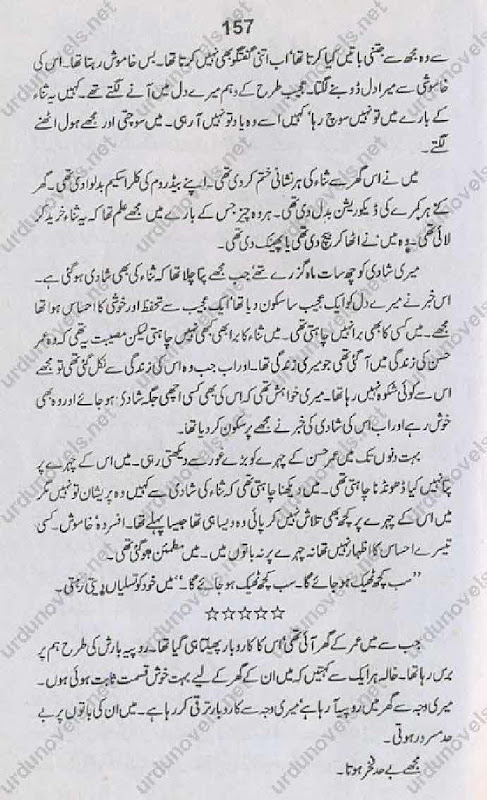 157
سے وہ مجھ سے جتنی باتیں کیا کرتا تھا' اب اتنی گفتگو بھی نہیں کرتا تھا۔ بس خاموش رہتا تھا۔ اس کی
خاموشی سے میرا دل ڈوبنے لگتا۔ عجیب طرح کے وہم میرے دل میں آنے لگتے تھے۔ کہیں یہ ثناء
کے بارے میں تو نہیں سوچ رہا' کہیں اسے وہ یاد تو نہیں آ رہی۔ میں سوچتی اور مجھے ہول اٹھنے
لگتے۔
میں نے اس گھر سے ثناء کی ہر نشانی ختم کر دی تھی۔ اپنے بیڈ روم کی کلر اسکیم بدلوا دی تھی۔ گھر
کے ہر کمرے کی ڈیکوریشن بدل دی تھی۔ ہر وہ چیز جس کے بارے میں مجھے علم تھا کہ یہ ثناء خرید کر
لائی تھی۔ وہ میں نے اٹھا کر بیچ دی تھی یا پھینک دی تھی۔
میری شادی کو چھ سات ماہ گزرے تھے' جب مجھے پتا چلا تھا کہ ثناء کی بھی شادی ہو گئی ہے۔
اس خبر نے میرے دل کو ایک عجیب سا سکون دیا تھا' ایک عجیب سے تحفظ اور خوشی کا احساس ہوا تھا
مجھے۔ میں کسی کا بھی برا نہیں چاہتی تھی۔ میں ثناء کا برا بھی کبھی نہیں چاہتی لیکن مصیبت یہ تھی کہ وہ عمر
حسن کی زندگی میں آ گئی تھی جو میری زندگی تھا۔ اور اب جب وہ اس کی زندگی سے نکل گئی تھی تو مجھے
اس سے کوئی شکوہ نہیں رہا تھا۔ میری خواہش تھی کہ اس کی بھی کسی اچھی جگہ شادی ہو جائے اور وہ بھی
خوش رہے اور اب اس کی شادی کی خبر نے مجھے پرسکون کر دیا تھا۔
بہت دنوں تک میں عمر حسن کے چہرے کو بڑے غور سے دیکھتی رہی۔ میں اس کے چہرے پر
پتا نہیں کیا ڈھونڈنا چاہتی تھی۔ میں دیکھنا چاہتی تھی کہ ثناء کی شادی سے کہیں وہ پریشان تو نہیں مگر
میں اس کے چہرے پر کچھ بھی تلاش نہیں کر پائی وہ ویسا ہی تھا جیسا پہلے تھا۔ افسردہ' خاموش۔ کسی
تیسرے احساس کا اظہار نہیں تھا نہ چہرے پر نہ باتوں میں۔ میں مطمئن ہو گئی تھی۔
”سب کچھ ٹھیک ہو جائے گا۔ سب کچھ ٹھیک ہو جائے گا۔“ میں خود کو تسلیاں دیتی رہتی۔
☆☆☆☆☆
جب سے میں عمر کے گھر آئی تھی' اس کا کاروبار پھیلتا ہی گیا تھا۔ روپیہ بارش کی طرح ہم پر
برس رہا تھا۔ خالہ ہر ایک سے کہتیں کہ میں ان کے گھر کے لیے بہت خوش قسمت ثابت ہوئی ہوں۔
میری وجہ سے گھر میں روپیہ آ رہا ہے' میری وجہ سے کاروبار ترقی کر رہا ہے۔ میں ان کی باتوں پر بے
حد مسرور ہوتی۔
مجھے بے حد فخر ہوتا۔
urdunovels.net